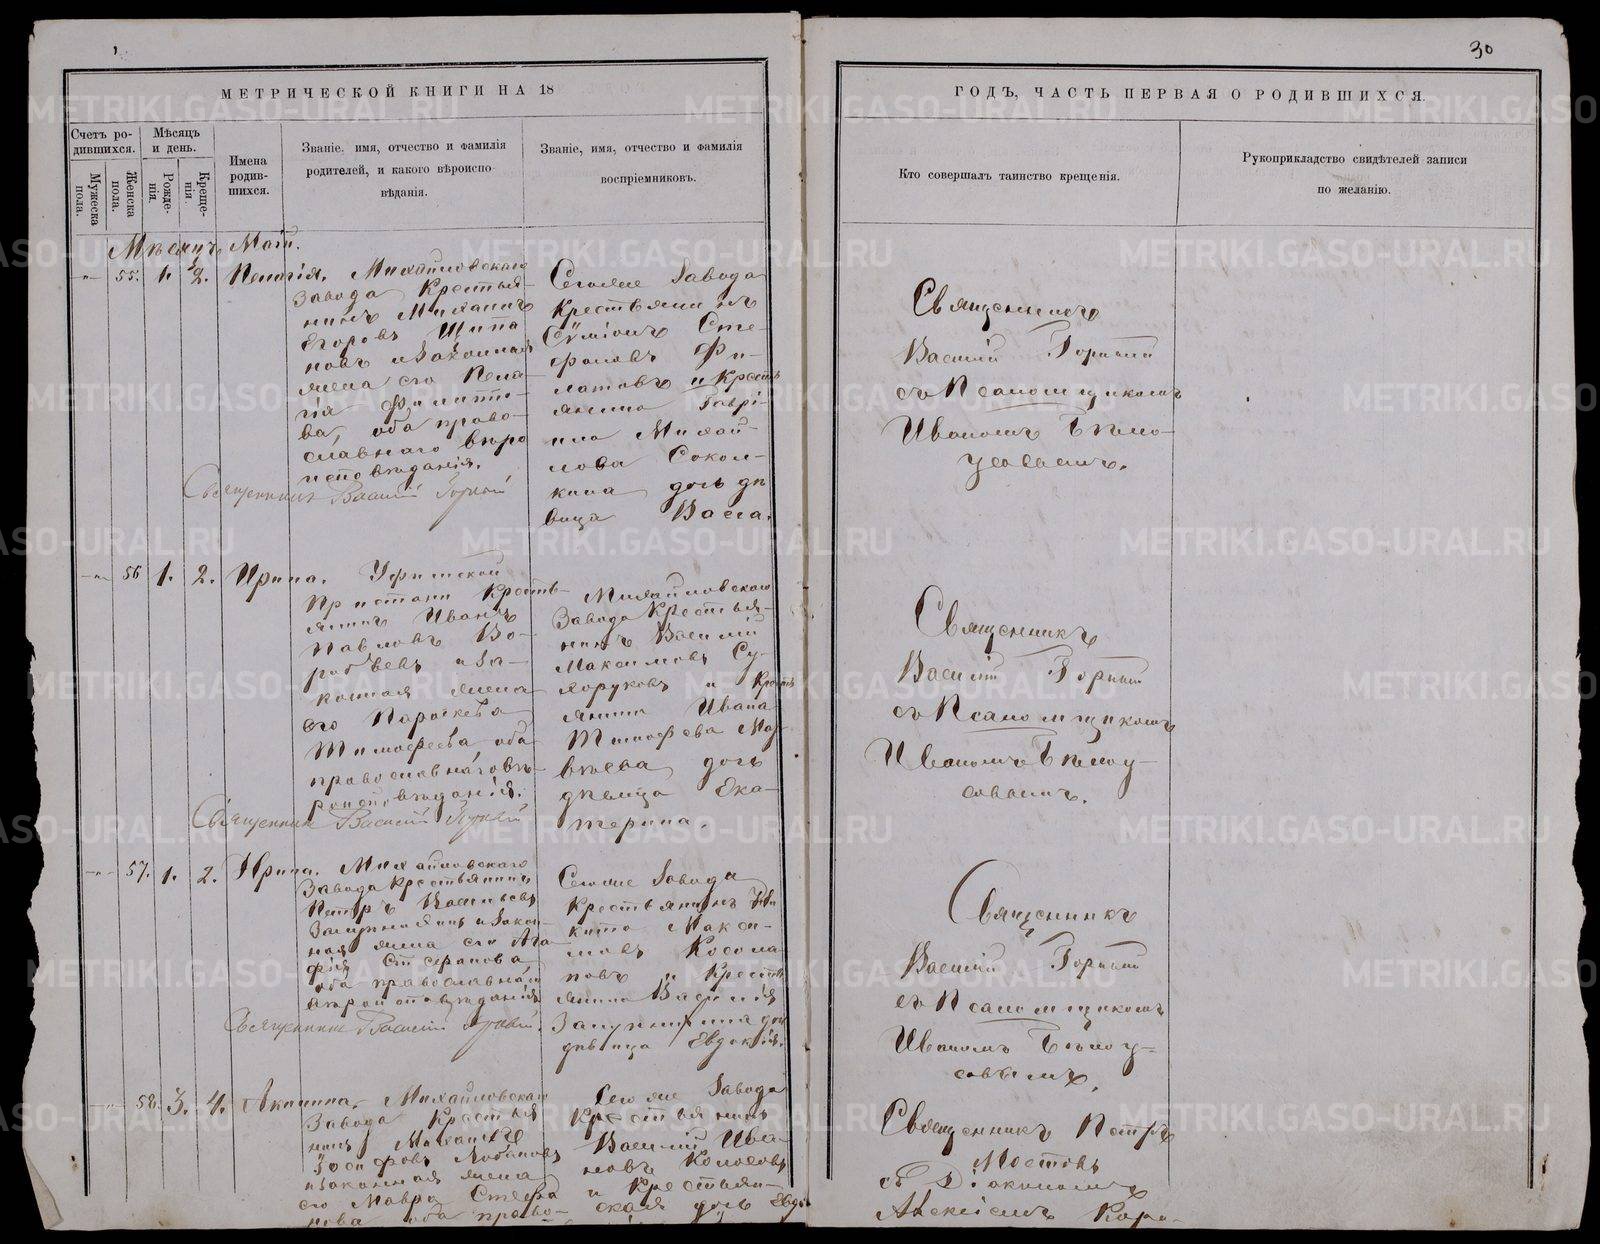 30
МЕТРИЧЕСКОЙ КНИГИ НА 18
ГОДЪ, ЧАСТЬ ПЕРВАЯ О РОДИВШИХСЯ.
Счетъ ро-
дившихся.
Мужеска
пола.
Женска
пола.
Мѣсяцъ
и день.
Рожде-
нія.
Креще-
нія.
Имена
родив-
шихся.
Званіе, имя, отчество и фамилія
родителей, и какого вѣроиспо-
вѣданія.
Званіе, имя, отчество и фамилія
воспріемниковъ.
Кто совершалъ таинство крещенія.
Рукоприкладство свидѣтелей записи
по желанію.
Мѣсяцъ Маій.
55. 1. 2. Пелагія.
Михайловскаго
Завода Крестья-
нинъ Михаилъ
Егоровъ Щипа
новъ и Законная
жена его Пела-
гія Филипо-
ва, оба право-
славнаго вѣро
исповѣданія.
Священникъ Василій Горный
Сегоже Завода
Крестьянинъ
Сѵмеонъ Сте-
фановъ Фи-
латовъ и Кресть
янина Гаврі-
ила Михай-
лова Сокол-
кина дочь дѣ
вица Васса.
Священникъ
Василій Горный
съ Псаломщикомъ
Иваномъ Бѣло-
усовымъ.
56 1. 2. Ирина.
Уфимской
Пристани Кресть-
янинъ Иванъ
Павловъ Во-
робьевъ и За-
конная жена
его Параскева
Тимофеева, оба
православнаго вѣ-
роисповѣданія.
Священникъ Василій Горный
Михайловскаго
Завода Крестья-
нинъ Василій
Максимовъ Су-
хоруковъ и Кресть
янина Ивана
Тимофеева Мат-
вѣева дочь
дѣвица Ека-
терина.
Священникъ
Василій Горный
съ Псаломщикомъ
Иваномъ Бѣлоу-
совымъ.
57. 1. 2. Ирина.
Михайловскаго
Завода Крестьянинъ
Петръ Васильевъ
и Закон-
ная жена его Ага-
фія Стефанова
оба православнаго
вѣроисповѣданія
Священникъ Василій Горный.
Сегоже Завода
Крестьянинъ Ни
кита Макси-
мовъ Косола-
повъ и Кресть
янина Василія
дочь
дѣвица Евдокія.
Священникъ
Василій Горный
съ Псаломщикомъ
Иваномъ Бѣлоу-
совымъ.
58. 3. 4. Акилина.
Михайловскаго
Завода Крестья
нинъ Михаилъ
Іосифовъ Лобановъ
и Законная жена
его Мавра Стефа
нова оба право-
Сегоже Завода
Крестьянинъ
Василій Ива-
новъ Колосовъ
и Крестьян-
ская дочь Евдо
Священникъ Петръ
Мостовъ
съ Діакономъ
Алексіемъ Коро-
METRIKI.GASO-URAL.RU